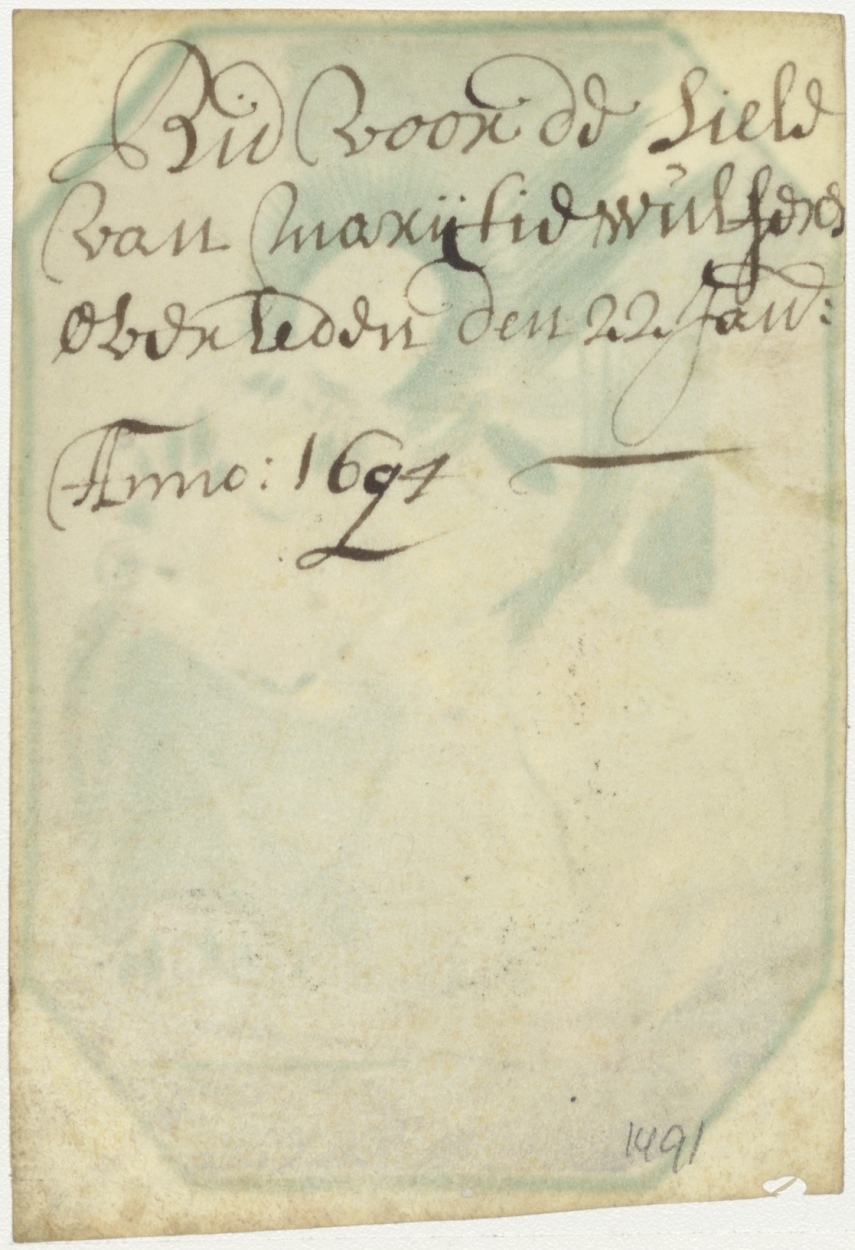 Bid voor de Siele
van marijtie wulfers
Overleden den 22 Jan:
Anno: 1694
1491